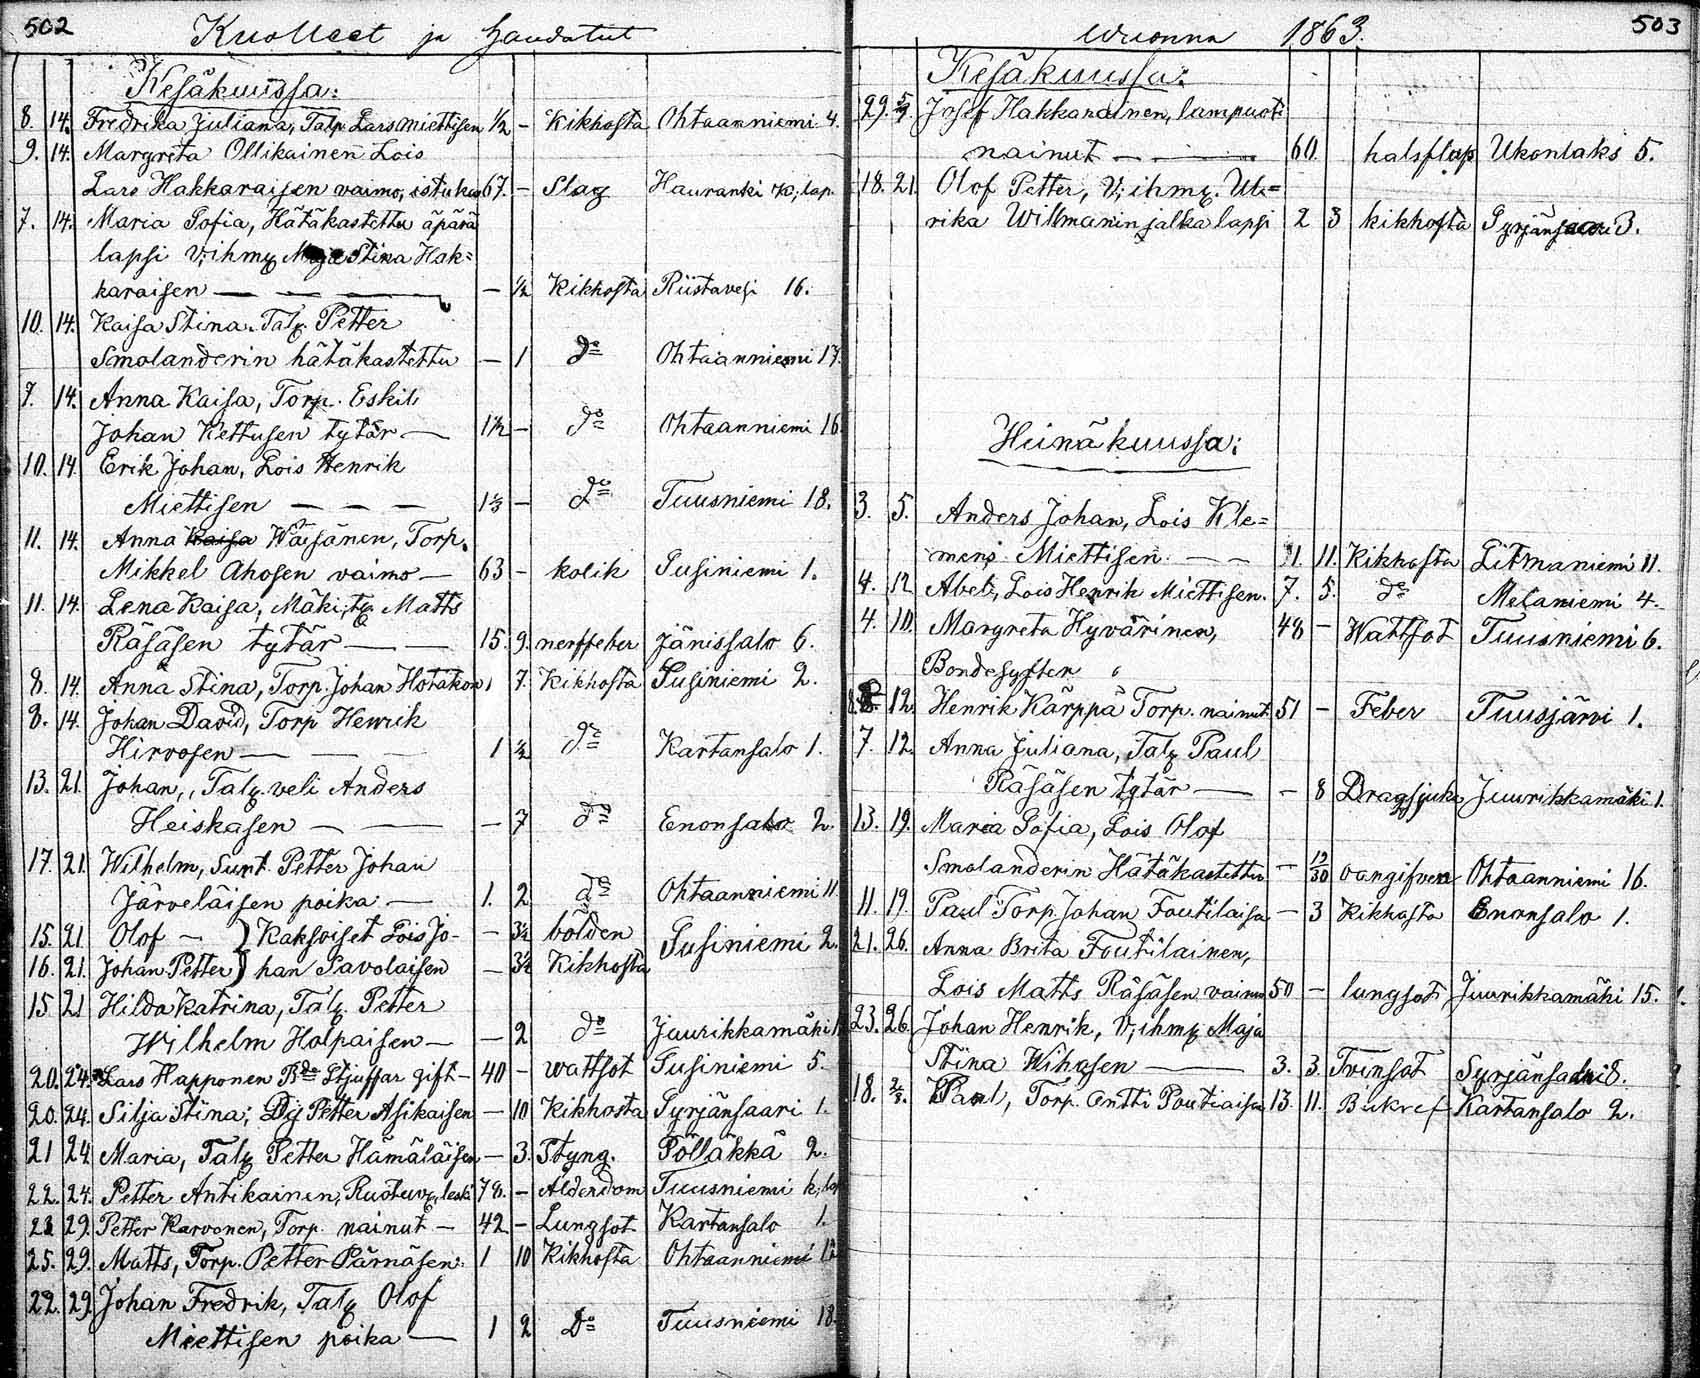 502 Kuolleet ja haudatut
Kesäkuussa:
8. 14. Fredrika Juliana, Talp Lars Miettisen 1/2 - Kikhosta Ohtaanniemi 4.
9. 14. Margreta Ollikainen Lois
Lars Hakkaraisen vaimo, istukas 67. - Slag Hauranki K; lap.
7. 14. Maria Sofia, Hätäkastettu äpärä
lapsi V; ihmx Maja Stina Hak=
karaisen — — — — 1/2 Kikhosta Riistavesi 16.
10. 14. Kaisa Stina. Talx. Petter
Smolanderin hätäkastettu — 1 do Ohtaanniemi 17.
7. 14. Anna Kaisa, Torp. Eskil
Johan Kettusen tytär — 1 1/2 - do Ohtaanniemi 16.
10. 14. Erik Johan, Lois Henrik
Miettisen — — — 1 1/3 - do Tuusniemi 18.
11. 14. Anna Kaisa Wäisänen, Torp.
Mikkel Ahosen vaimo — 63 - kolik Susiniemi 1.
11. 14. Lena Kaisa, Mäki;tx Matts
Räsäsen tytär — — 15. 9. nerffeber Jänissalo 6.
8. 14. Anna Stina, Torp. Johan Hotakon 1 7. Kikhosta Susiniemi 2.
8. 14. Johan David, Torp Henrik
Hirvosen — — — 1 1/2 do Kartansalo 1.
13. 21. Johan, Talx. veli Anders
Heiskasen — — — 7 do Enonsalo 2.
17. 21. Wilhelm, Sunt. Petter Johan
Järveläisen poika — 1. 2 do Ohtaanniemi 11.
15. 21 Olof — } Kaksoiset Lois Jo- — 3 1/2 bölden Susiniemi 2.
16. 21. Johan Petter } han Savolaisen — 3 1/2 Kikhosta
15 21 Hilda Katrina, Talx. Petter
Wilhelm Holpaisen — — 2 do Juurikkamäki
20. 24. Lars Happonen Bde Stjuffar gift — 40 - wattsot Susiniemi 5.
20. 24. Silja Stina; Dg Petter Asikaisen — 10 Kikhosta Syrjänsaari 1.
21 24 Maria, Talx Petter Hämäläisen — 3. Styng. Pölläkkä 2.
22. 24. Petter Antikainen, Ruotuvx, leski 78. - Alderdom Tuusniemi k, lap
23 29. Petter Karvonen, Torp. nainut — 42 - Lungsot Kartansalo 1.
25. 29. Matts, Torp. Petter Pärnäsen: 1 10 Kikhosta Ohtaanniemi
22. 29. Johan Fredrik, Talx Olof
Miettisen poika — 1 2 Do Tuusniemi 18.
Wuonna 1863. 503
Kesäkuussa:
29. 5/7. Josef Hakkarainen, lampuoti
nainut — — 60. halsflup Ukonlaks 5.
18. 21. Olof Petter, V; ihmx. Ul=
rika Willmanin jalka lapsi 2 3 kikhosta Syrjänsaari 3.
Heinäkuussa:
3. 5. Anders Johan, Lois Kle=
mens Miettisen — — 1. 11. Kikhosta Litmaniemi 11.
4. 12 Abel, Lois Henrik Miettisen. 7. 5. do Melaniemi 4.
4. 10. Margreta Hyvärinen, 48 - Wattsot Tuusniemi 6.
Bondesyster
8. 12. Henrik Kärppä Torp. nainut 51 - Feber Tuusjärvi 1.
7. 12. Anna Juliana, Talx Paul
Räsäsen tytär — — 8 Dragsjuka Juurikkamäki 1.
13. 19. Maria Sofia, Lois Olof
Smolanderin Hätäkastettu — 19/30 oangifven Ohtaanniemi 16.
11. 19. Paul Torp. Johan Foutilaisa — 3 Kikhosta Enonsalo 1.
21. 26. Anna Brita Foutilainen,
Lois Matts Räsäsen vaimo 50 - lungsot Juurikkamäki 15.
23. 26. Johan Henrik, V; ihmx Maja
Stina Wihasen — 3. 3. Tvinsot Syrjänsaari 8.
18. 2/8. Paul, Torp. Antti Poutiaisen 13. 11. Bukref Kartansalo 2.